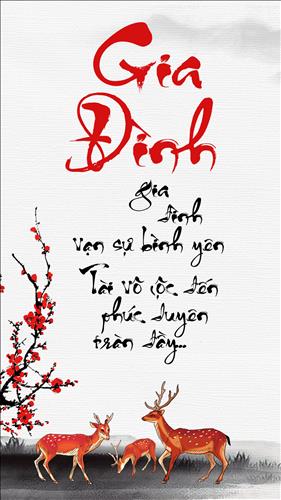 Gia
Đình
gia
đình
vạn sự bình yên
Tài vô lộc đến
phúc duyên
tràn đầy...